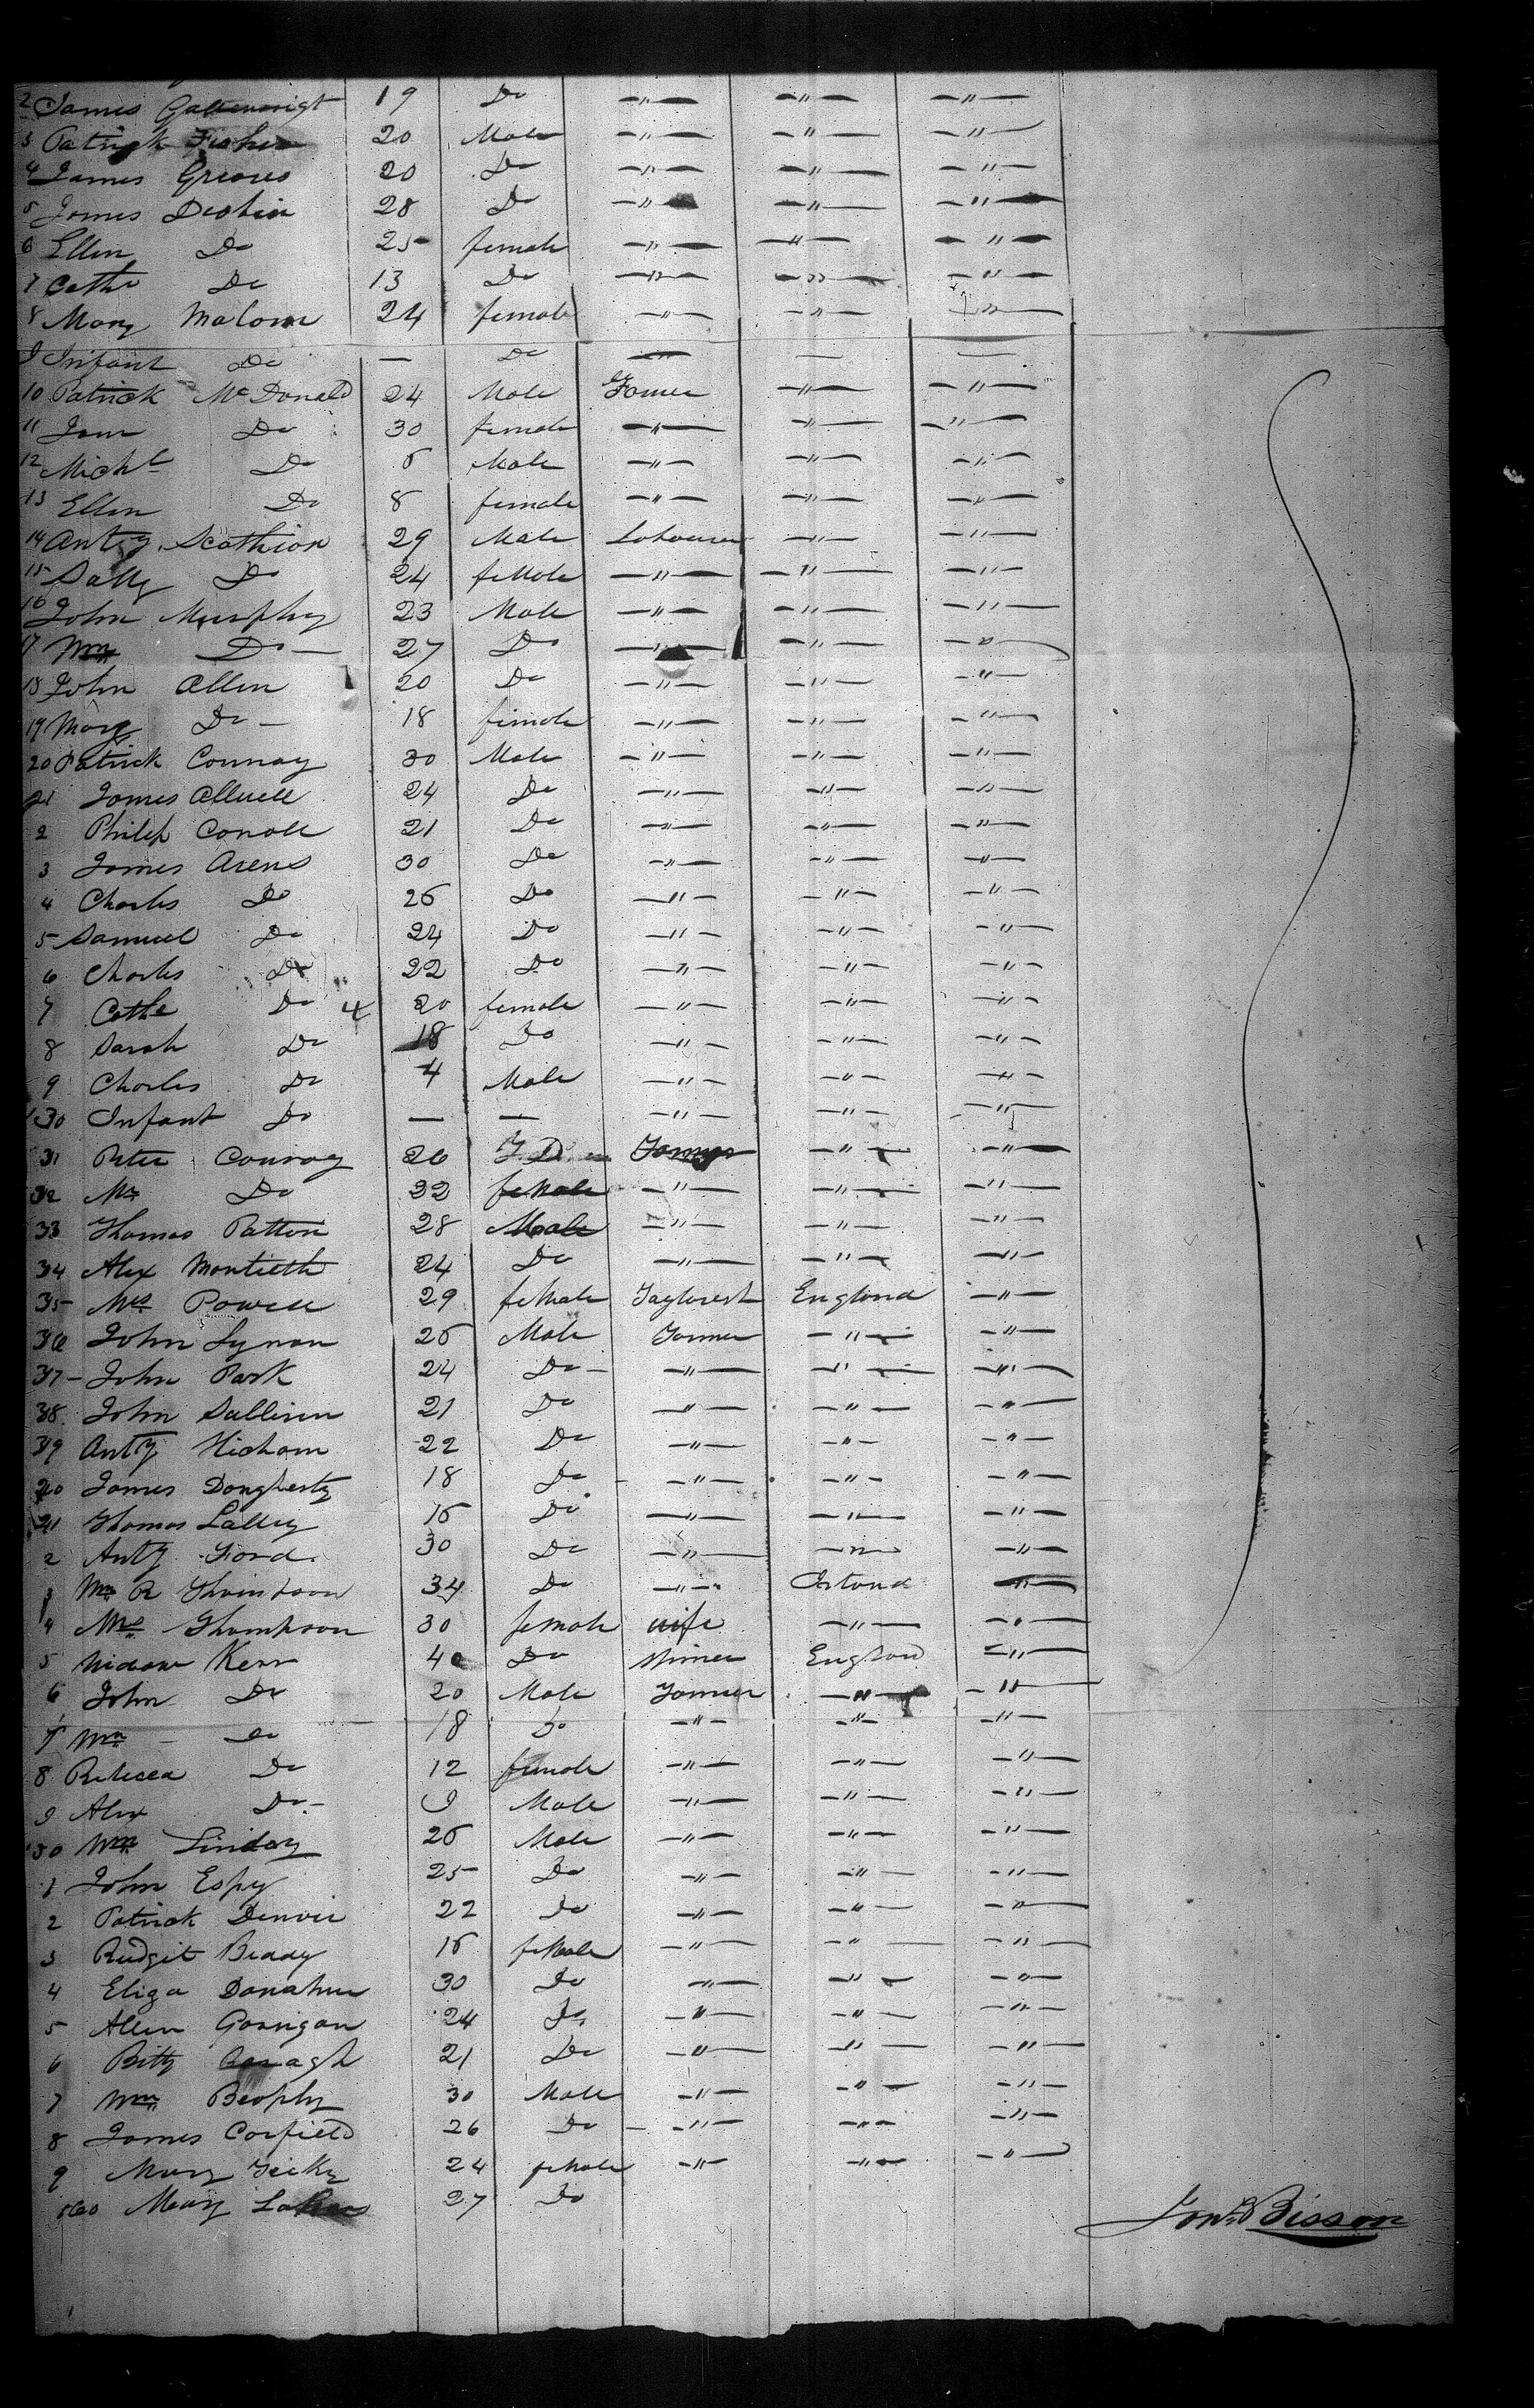 2 James Gallewright 19 Do —"— —"— —"—
3 Patrick Fisher 20 Male —"— —"— —"—
4 James Greaves 20 Do —"— —"— —"—
5 James Deolin 28 Do —"— —"— —"—
6 Ellen Do 25 female —"— —"— —"—
7 Cathe Do 13 Do —"— —"— —"—
8 Mary Malone 24 female —"— —"— —"—
9 Infant Do — Do — —
10 Patrick McDonald 24 Male Farmer —"— —"—
11 Jane Do 30 female —"— —"— —"—
12 Michl Do 6 Male —"— —"— —"—
13 Ellen Do 8 female —"— —"— —"—
14 Anty Scathion 29 Male Labourer —"— —"—
15 Sally Do 24 female —"— —"— —"—
16 John Murphy 23 Male —"— —"— —"—
17 Wm Do — 27 Do —"— —"— —"—
18 John Allen 20 Do —"— —"— —"—
19 Mary Do — 18 female —"— —"— —"—
20 Patrick Connay 30 Male —"— —"— —"—
21 James 24 Do —"— —"— —"—
2 Philip Conoll 21 Do —"— —"— —"—
3 James Arens 30 Do —"— —"— —"—
4 Charles Do 26 Do —"— —"— —"—
5 Samuel Do 24 Do —"— —"— —"—
6 Charles Do 22 Do —"— —"— —"—
7 Cathe Do 4 20 female —"— —"— —"—
8 Sarah Do 18 Do —"— —"— —"—
9 Charles Do 4 Male —"— —"— —"—
30 Infant Do — — —"— —"— —"—
31 Peter Conroy 26 Do Farmer —"— —"—
32 Mrs Do 32 female —"— —"— —"—
33 Thomas Patton 28 Male —"— —"— —"—
34 Alex Montieth 24 Do —"— —"— —"—
35 Mrs Powell 29 female England —"—
36 John Lynan 26 Male Farmer —"— —"—
37 John Park 24 Do —"— —"— —"—
38 John Sulliven 21 Do —"— —"— —"—
39 Anty Hicham 22 Do —"— —"— —"—
20 James Dougherty 18 Do —"— —"— —"—
21 Thomas Lalley 16 Do —"— —"— —"—
2 Anty Ford 30 Do —"— —"— —"—
3 Wm R Thompson 34 Do —"— —"—
4 Mrs Thompson 30 female wife —"— —"—
5 Widow Kerr 40 Do England —"—
6 John Do 20 Male Farmer —"— —"—
7 Wm Do 18 Do —"— —"— —"—
8 Rebecca Do 12 female —"— —"— —"—
9 Alex Do 9 Male —"— —"— —"—
50 Wm Linday 26 Male —"— —"— —"—
1 John Espy 25 Do —"— —"— —"—
2 Patrick Denvir 22 Do —"— —"— —"—
3 Bridgit Beady 16 female —"— —"— —"—
4 Eliza Donahue 30 Do —"— —"— —"—
5 Allen Gorrigan 24 Do —"— —"— —"—
6 Bitty Cavagh 21 Do —"— —"— —"—
7 Wm Beophy 30 Male —"— —"— —"—
8 James Corfield 26 Do —"— —"— —"—
9 Mary 24 female —"— —"— —"—
160 Mary 27 Do
Jonn Bisson